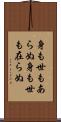 身も世もあ
らぬ身も世
も在らぬ